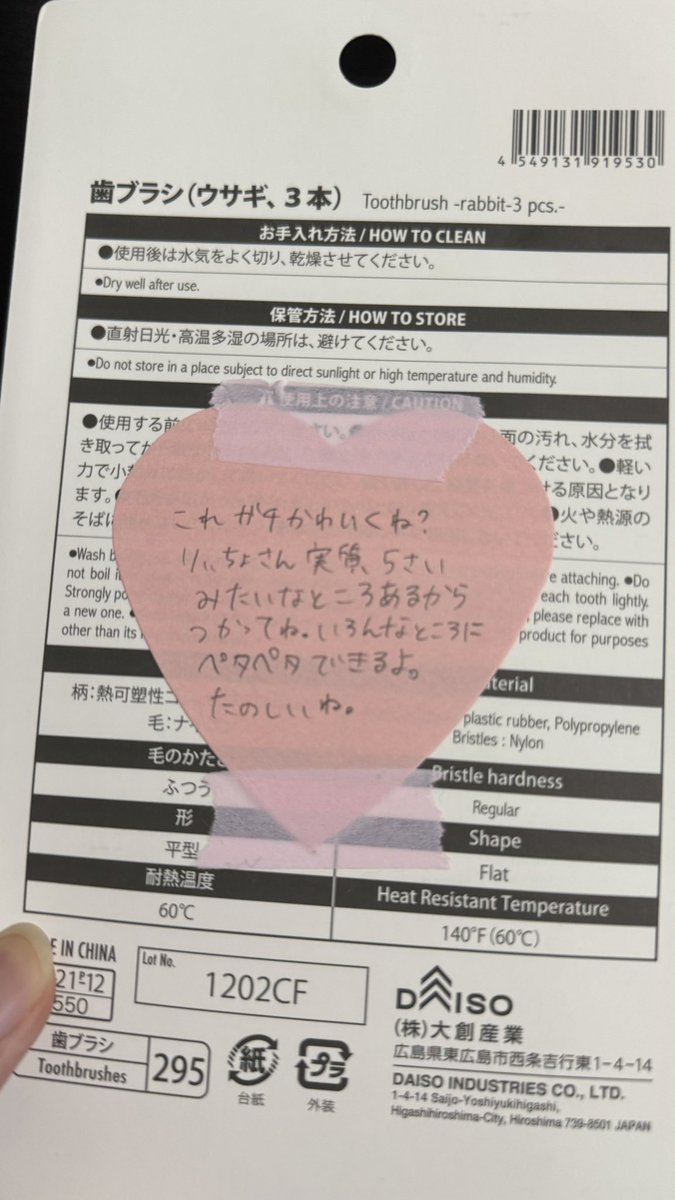 4 549131 919530
歯ブラシ(ウサギ、3本) Toothbrush -rabbit-3 pcs.-
お手入れ方法 / HOW TO CLEAN
●使用後は水気をよく切り、乾燥させてください。
●Dry well after use.
保管方法 / HOW TO STORE
●直射日光・高温多湿の場所は、避けてください。
●Do not store in a place subject to direct sunlight or high temperature and humidity.
使用上の注意 / CAUTION
●使用する前
面の汚れ、水分を拭
き取って
ください。●軽い
力で小
ける原因となり
ます。
●火や熱源の
そばに
ださい。
●Wash
e attaching. ●Do
not boil
each tooth lightly.
Strongly
please replace with
a new one.
product for purposes
other than its
これ ガチかわいくね?
りぃちょさん 実質、5さい
みたいなところあるから
つかってね。いろんなところに
ペタペタできるよ。
たのしいね。
terial
柄:熱可塑性
plastic rubber, Polypropylene
毛:ナ
Bristles : Nylon
毛のかた
Bristle hardness
ふつう
Regular
形
Shape
平型
Flat
耐熱温度
Heat Resistant Temperature
60℃
140°F(60℃)
E IN CHINA
21 12
550
Lot No.
1202CF
歯ブラシ
Toothbrushes
295
紙
台紙
プラ
外装
DAISO
(株)大創産業
広島県東広島市西条吉行東1-4-14
DAISO INDUSTRIES CO., LTD.
1-4-14 Saijo-Yoshiyukihigashi,
Higashihiroshima-City, Hiroshima 739-8501 JAPAN